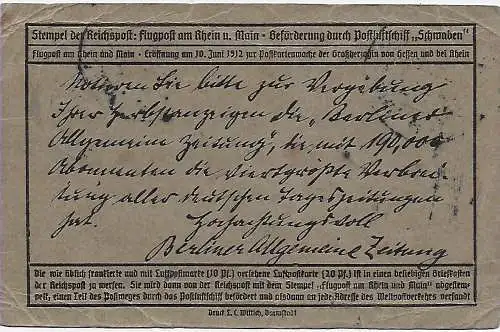 Stempel der Reichspost: Flugpost am Rhein u. Main - Beförderung durch Postluftschiff „Schwaben"
Flugpost am Rhein und Main - Eröffnung am 10. Juni 1912 zur Postkartenwoche der Großherzogin von Hessen und bei Rhein
Notieren Sie bitte zur Vergebung
Ihrer Herbstanzeigen die „Berliner
Allgemeine Zeitung", die mit 190,000
Abonnenten die viertgrößte Verbrei-
tung aller deutschen Tageszeitungen
hat.
Hochachtungsvoll
Berliner Allgemeine Zeitung
Die wie üblich frankierte und mit Luftpostmarke (10 Pf.) versehene Luftpostkarte (20 Pf.) ist in einen beliebigen Briefkasten
der Reichspost zu werfen. Sie wird dann von der Reichspost mit dem Stempel „Flugpost am Rhein und Main" abgestem-
pelt, einen Teil des Postweges durch das Postluftschiff befördert und alsdann an jede Adresse des Weltpostverkehrs versandt
Druck L. C. Wittich, Darmstadt